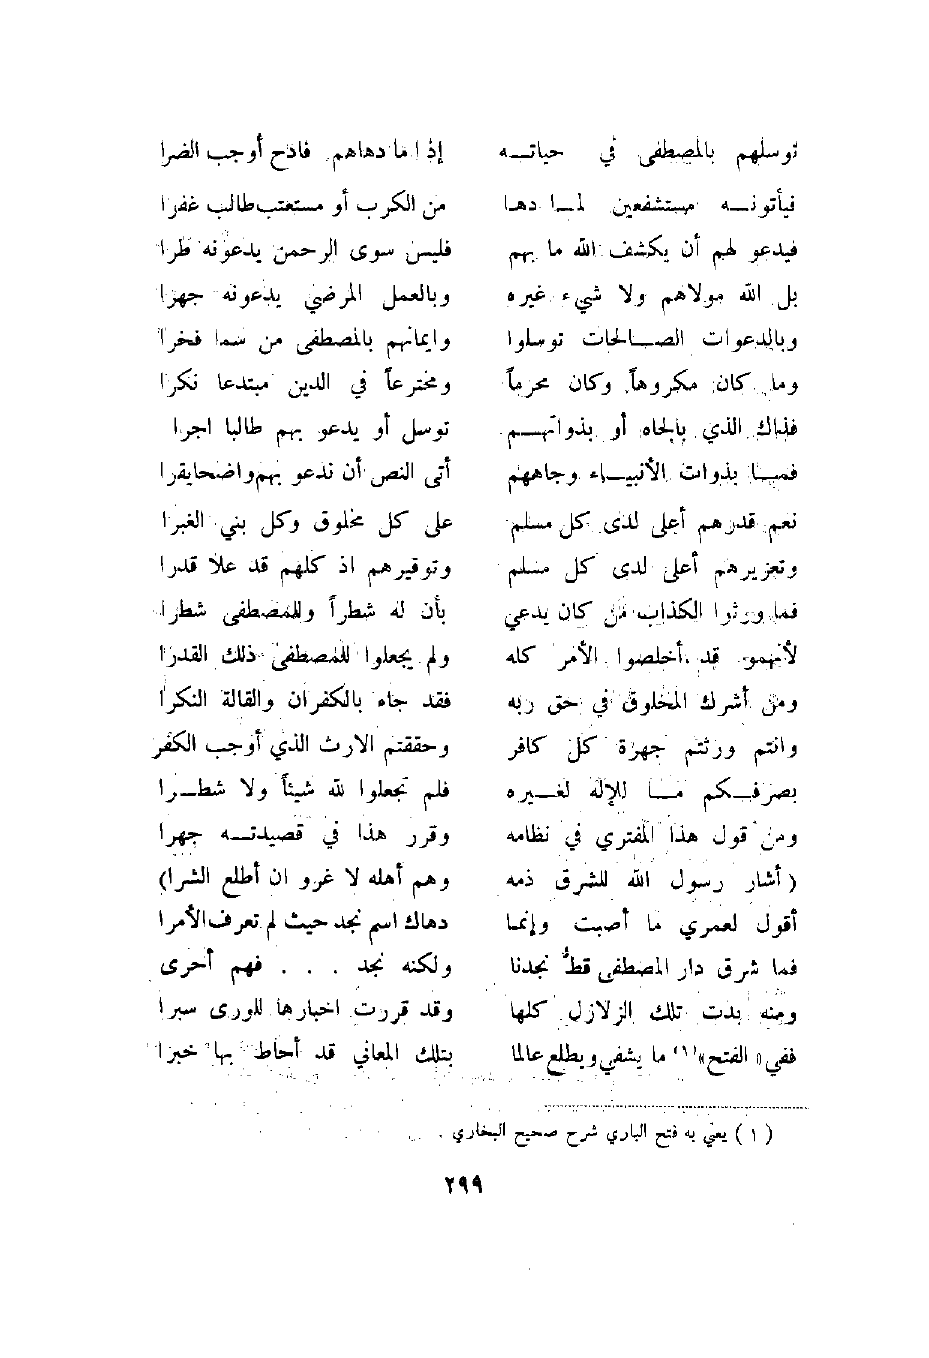 توسلهم بالمصطفى في حياتـــه إذا ما دهاهم فادح أوجب الضرا
فيأتونـــه مستشفعين لمـــا دهـا من الكرب أو مستعتب طالب غفرا
فيدعو لهم أن يكشف الله ما بهم فليس سوى الرحمن يدعونه طرا
بل الله مولاهم ولا شيء غيره وبالعمل المرضي يدعونه جهرا
وبالدعوات الصـــالحات توسلوا وايمانهم بالمصطفى من سما فخرا
وما كان مكروهاً وكان محرماً ومخترعاً في الدين مبتدعا نكرا
فذاك الذي بالجاه أو بذواتهـــم توسل أو يدعو بهم طالبا اجرا
فمـــا بذوات الأنبيـــاء وجاههم أتى النص أن ندعو بهم واضحا يقرا
نعم قدرهم أعلى لدى كل مسلم على كل مخلوق وكل بني الغبرا
وتعزيرهم أعلى لدى كل مسلم وتوقيرهم اذ كلهم قد علا قدرا
فما ورثوا الكذاب من كان يدعي بأن له شطراً وللمصطفى شطرا
لأنهمو قد أخلصوا الأمر كله ولم يجعلوا للمصطفى ذلك القدرا
ومن أشرك المخلوق في حق ربه فقد جاء بالكفران والقالة النكرا
وانتم ورثتم جهرة كل كافر وحققتم الارث الذي أوجب الكفر
بصرفـــكم مـــا للإله لغـــيره فلم تجعلوا لله شيئاً ولا شطـــرا
ومن قول هذا المفتري في نظامه وقرر هذا في قصيدتـــه جهرا
(أشار رسول الله للشرق ذمه وهم أهله لا غرو ان أطلع الشرا)
أقول لعمري ما أصبت وإنما دهاك اسم نجد حيث لم تعرف الأمرا
فما شرق دار المصطفى قطُّ نجدنا ولكنه نجد . . . فهم أحرى
ومنه بدت تلك الزلازل كلها وقد قررت اخبارها للورى سبرا
ففي «الفتح»(١) ما يشفي ويطلع عالما بتلك المعاني قد أحاط بها خبرا
(١) يعني به فتح الباري شرح صحيح البخاري .
٢٩٩